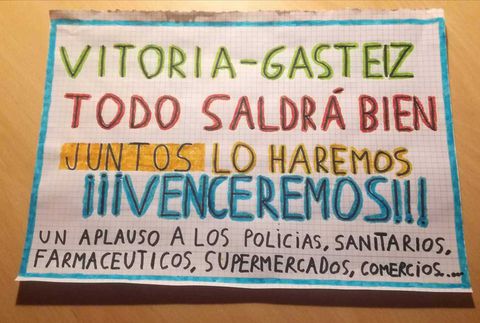 VITORIA-GASTEIZ
TODO SALDRÁ BIEN
JUNTOS LO HAREMOS
¡¡¡VENCEREMOS!!!
UN APLAUSO A LOS POLICIAS, SANITARIOS,
FARMACEUTICOS, SUPERMERCADOS, COMERCIOS.....